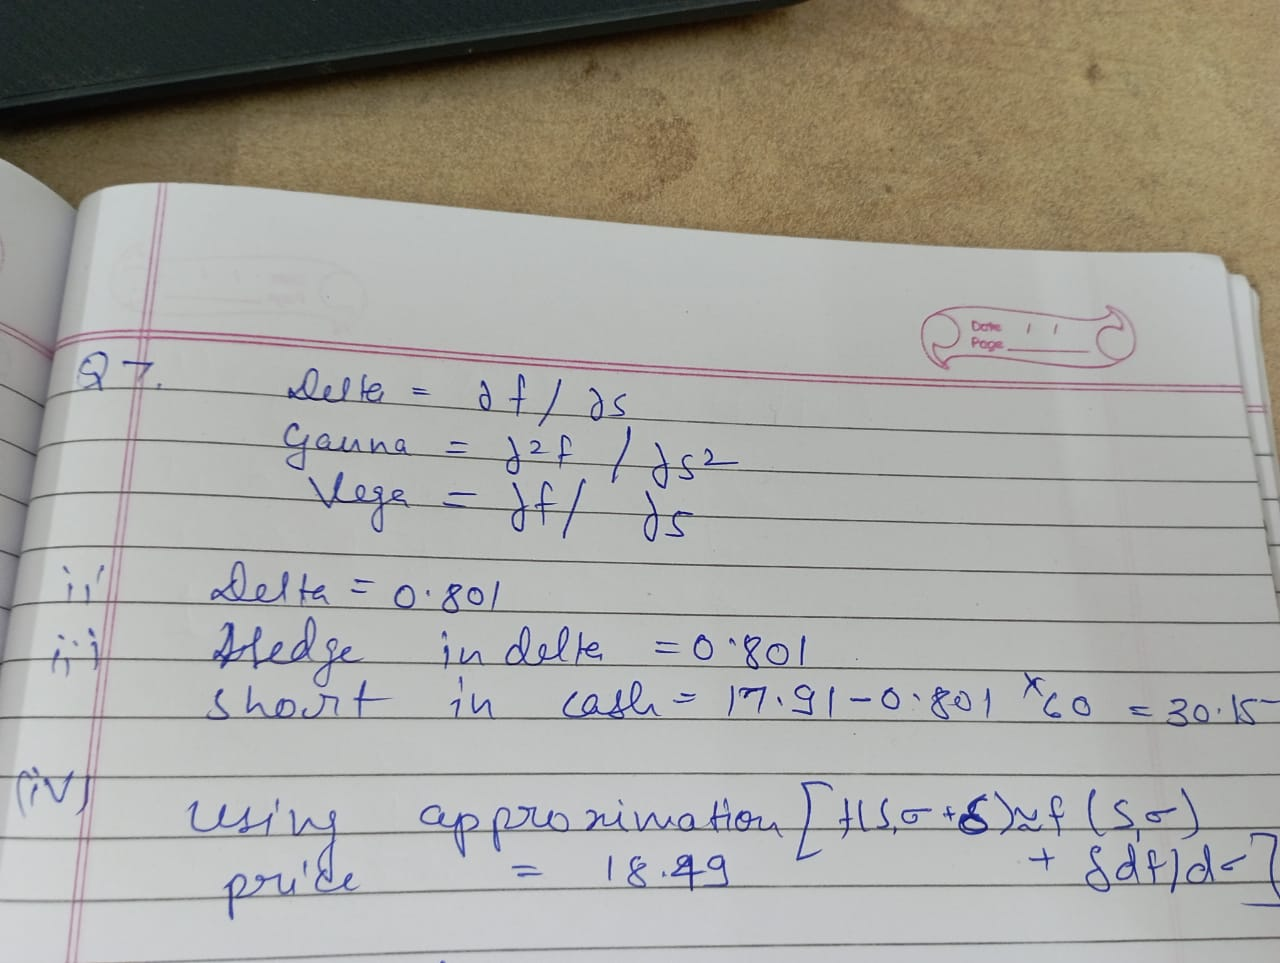 Date / /
Page
Q7.
Delta = ∂f/∂s
Gauna = ∂²f / ∂s²
Vega = ∂f/ ∂s
ii Delta = 0.801
iii Hedge in delta = 0.801
short in cash = 17.91-0.801 × 60 = 30.15
(iv)
Using approximation [f(S,σ+δ)≈f (S,σ)
price = 18.49 + δdf/dσ]